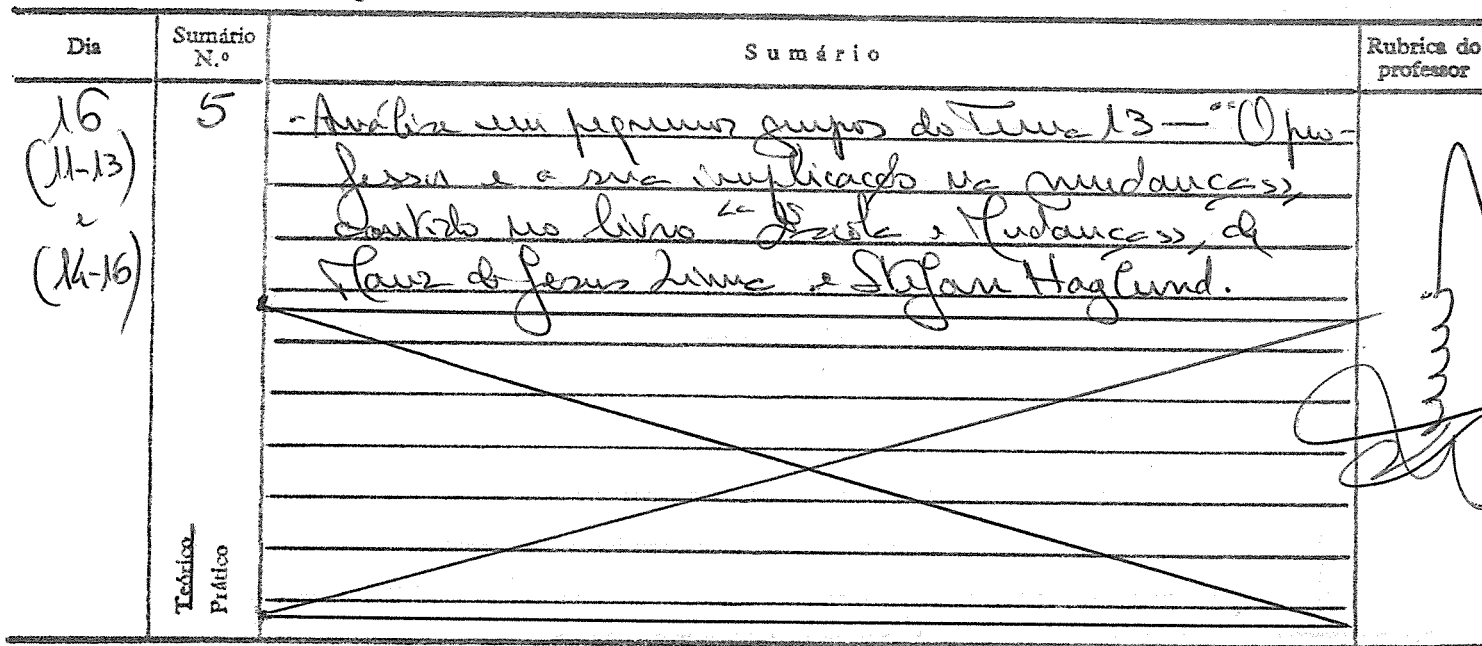 Dia
Sumário N.º
Sumário
Rubrica do professor
16
(11-13)
e
(14-16)
5
Teórico
Prático
- Análise em pequenos grupos do Tema 13 — "O pro-
fessor e a sua implicação na mudança»,
contido no livro "Escola e Mudança», de
de Jesus Lima e Stefan Haglund.